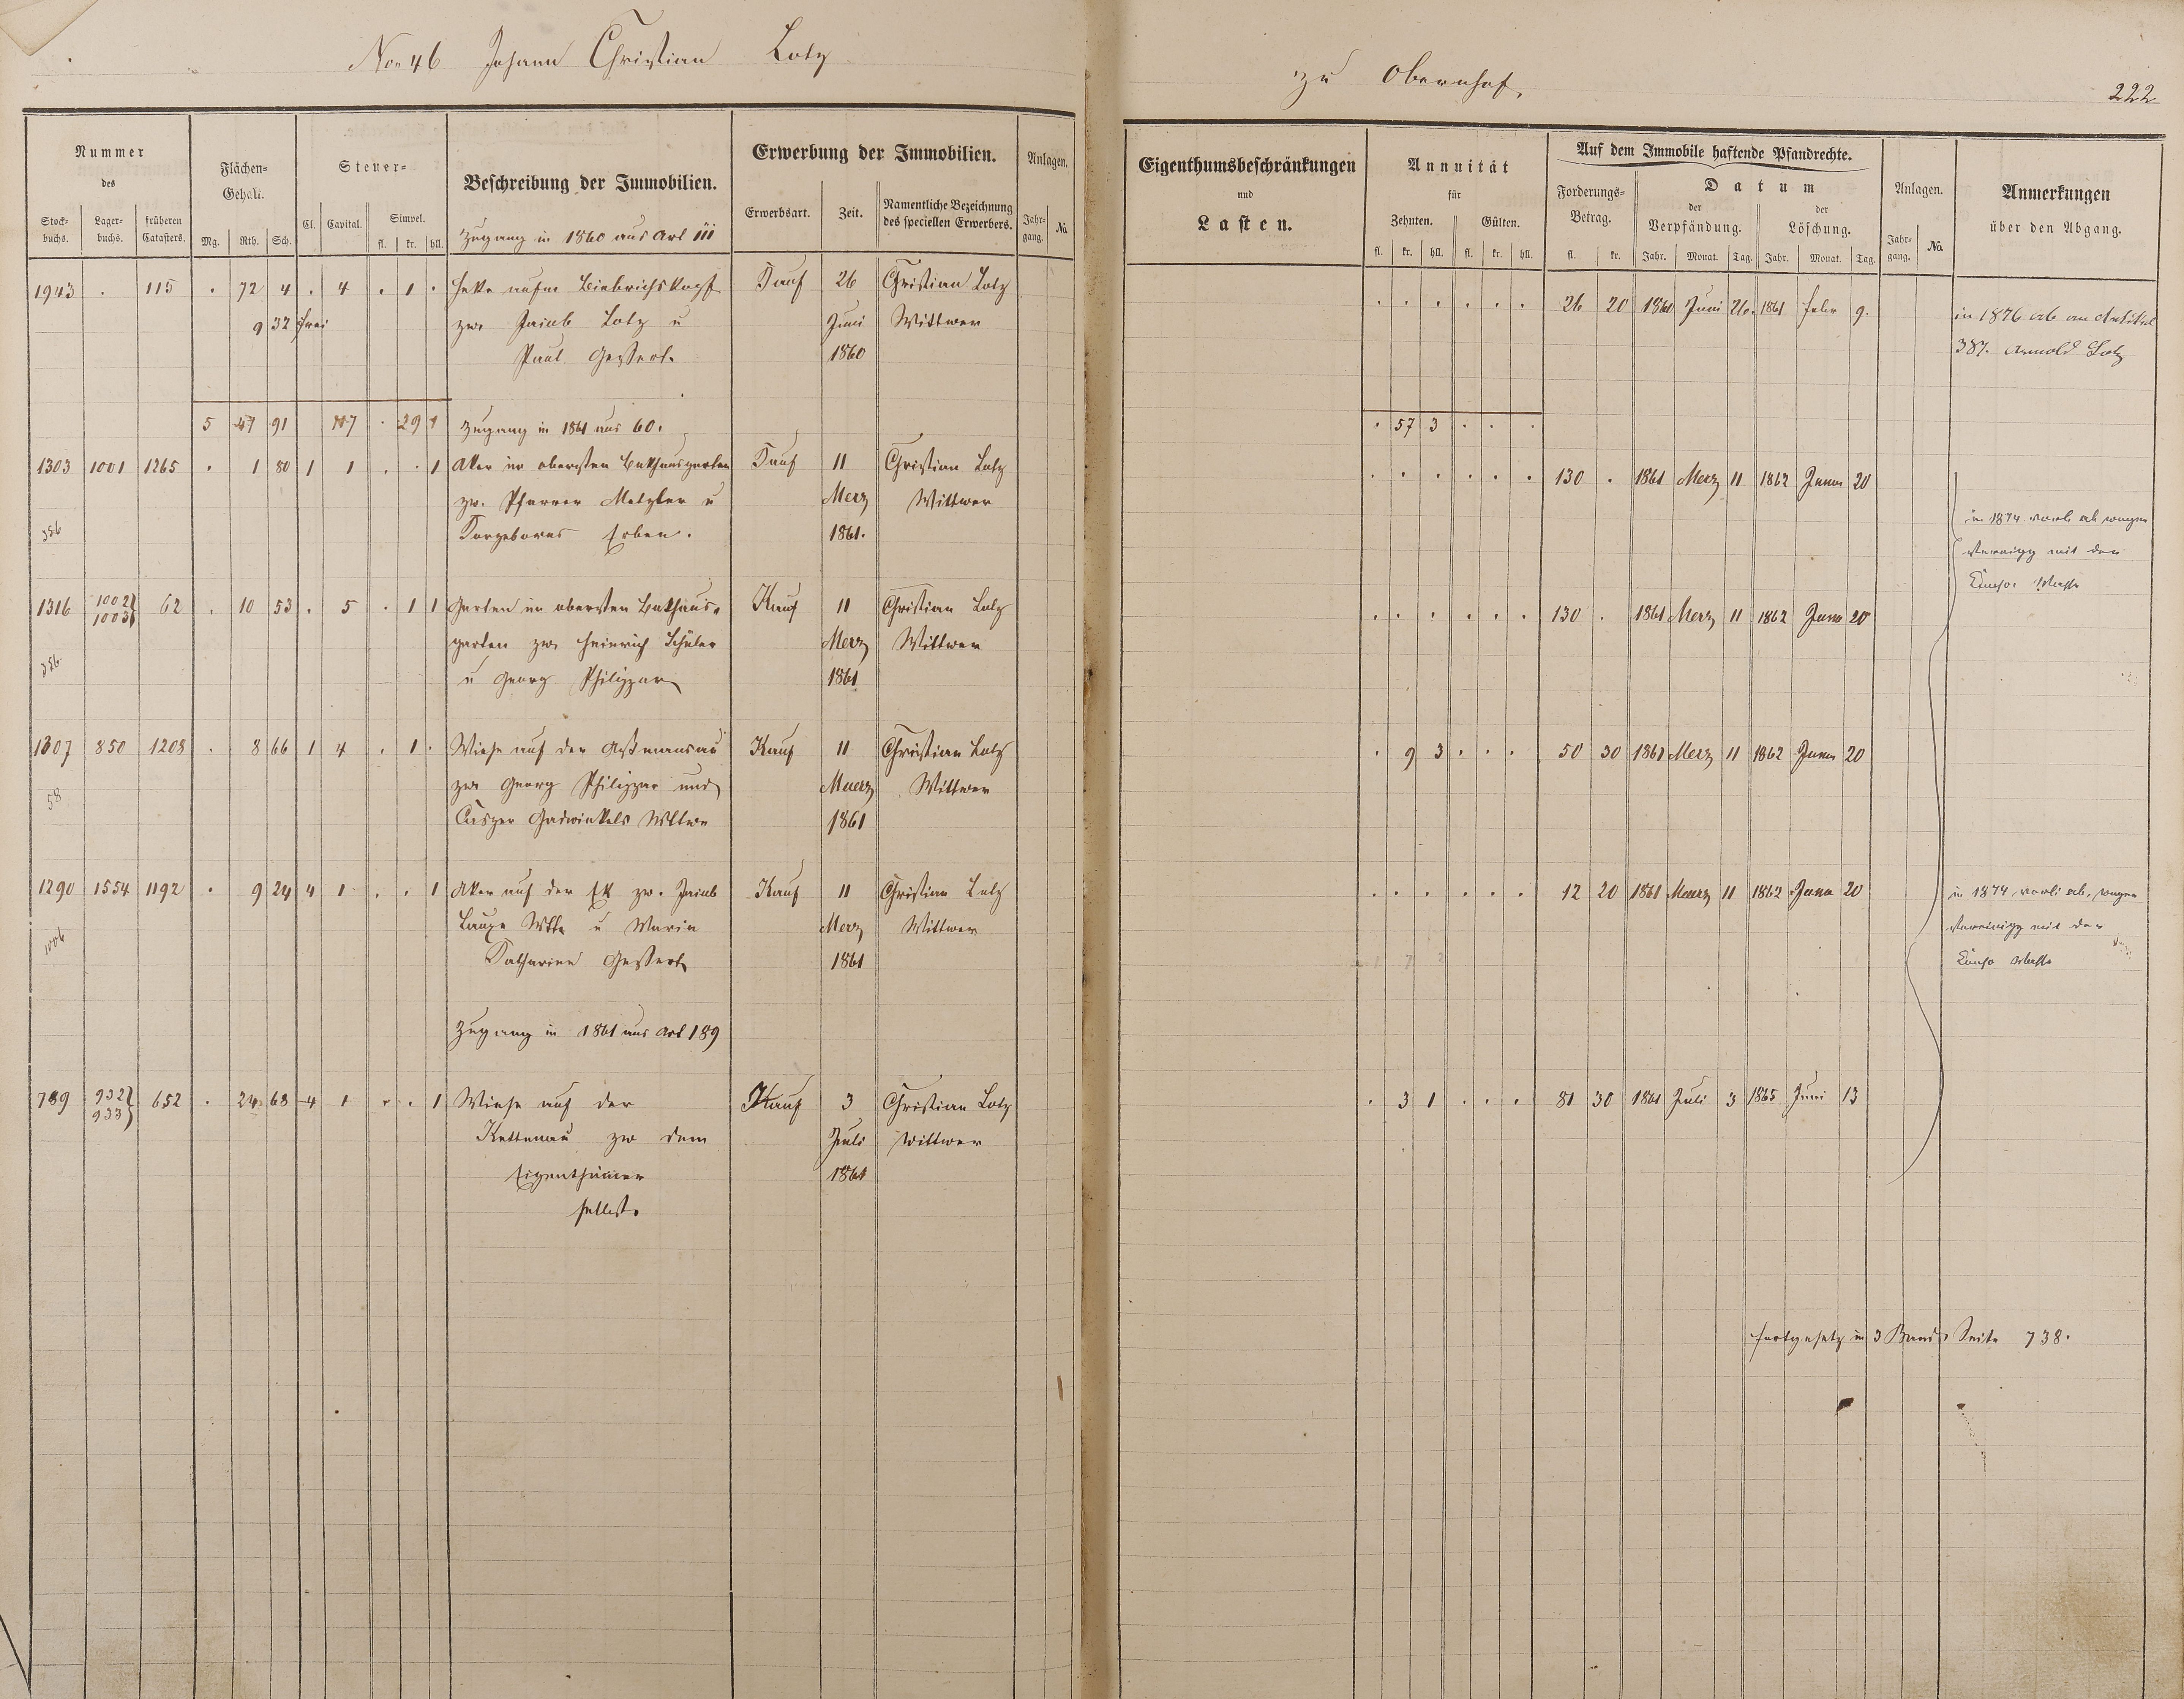 No 46 Johann Christian Lotz
zu Obernhof.
222
Nummer des
Stockbuchs.
Lagerbuchs.
früheren Catasters.
Flächen-Gehalt.
Mg. Rth. Sch.
Steuer-
Cl. Capital. Simpel.
fl. kr. hll.
Beschreibung der Immobilien.
Erwerbung der Immobilien.
Erwerbsart. Zeit. Namentliche Bezeichnung des speciellen Erwerbers.
Anlagen.
Jahrgang. No.
Eigenthumsbeschränkungen
und
Lasten.
Annuität
für
Zehnten. Gülten.
fl. kr. hll. fl. kr. hll.
Auf dem Immobile haftende Pfandrechte.
Forderungs-Betrag.
fl. kr.
Datum
der Verpfändung. der Löschung.
Jahr. Monat. Tag. Jahr. Monat. Tag.
Anlagen.
Jahrgang. No.
Anmerkungen
über den Abgang.
Zugang in 1860 aus Art III
1943 . 115 . 72 4 . 4 . 1 . Heke aufm Biebrichskopf Kauf 26 Christian Lotz . . . . . . 26 20 1860 Juni 26. 1861 Febr 9.
9 32 frei zw. Jacob Lotz u Juni Wittwer in 1876 ab an Artikel
Paul Gessert. 1860 387. Arnold Lotz
5 47 91 . 29 1 Zugang in 1861 aus 60. . 57 3 . . .
1303 1001 1265 . 1 80 1 1 . . 1 Aker im obersten Bakhausgarten Kauf 11 Christian Lotz . . . . . . 130 . 1861 Merz 11 1862 Janr 20
zw. Pfarrer Metzler u Merz Wittwer
356 Erben. 1861.
in 1874 ab wegen
mit der
1316 1002 1003 62 . 10 53 . 5 . 1 1 Garten im obersten Bakhaus- Kauf 11 Christian Lotz . . . . . . 130 . 1861 Merz 11 1862 Janr 20
garten zw. Heinrich Schüler Merz Wittwer
356 u Georg Philippar 1861
1307 850 1208 . 8 66 1 4 . 1 . Wiese auf der Assmansau Kauf 11 Christian Lotz . 9 3 . . . 50 30 1861 Merz 11 1862 Janr 20
58 zw Georg Philippar und Maerz Wittwer
Casper Wittwe 1861
1290 1554 1192 . 9 24 4 1 . . 1 Aker auf der Ek zw. Jacob Kauf 11 Christian Lotz . . . . . . 12 20 1861 Maerz 11 1862 Janr 20
u Maria Merz Wittwer
Katharina Gessert 1861
in 1874 ab, wegen
mit der
Zugang in 1861 aus Art 189
789 932 933 652 . 24 68 4 1 . . 1 Wiese auf der Kauf 3 Christian Lotz . 3 1 . . . 81 30 1861 Juli 3 1865 Juni 13
Kettenau zw dem Juli Wittwer
Eigenthümer 1861
selbst.
fortgesetz in 3 Band Seite 738.